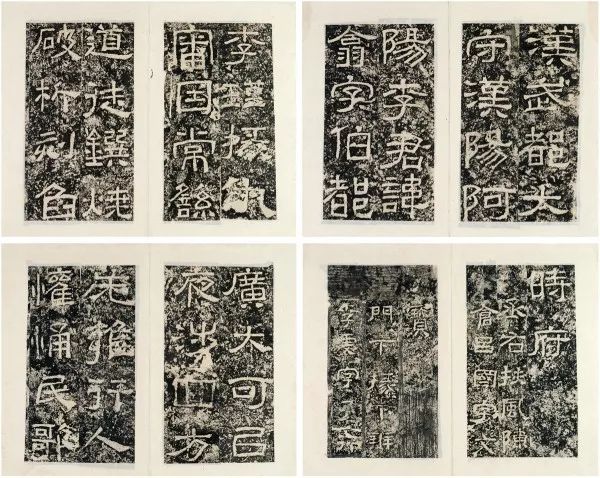 漢武都大
守漢陽阿
陽李君諱
翕字伯都
李瑾掾仇
審因常繇
道徒鐉燒
破析刻臽
時府
丞右扶風陳
倉呂國字文
寶
門下掾下辨
李虔字子
廣大可㠯
夜涉四方
无雍行人
懽悀民歌